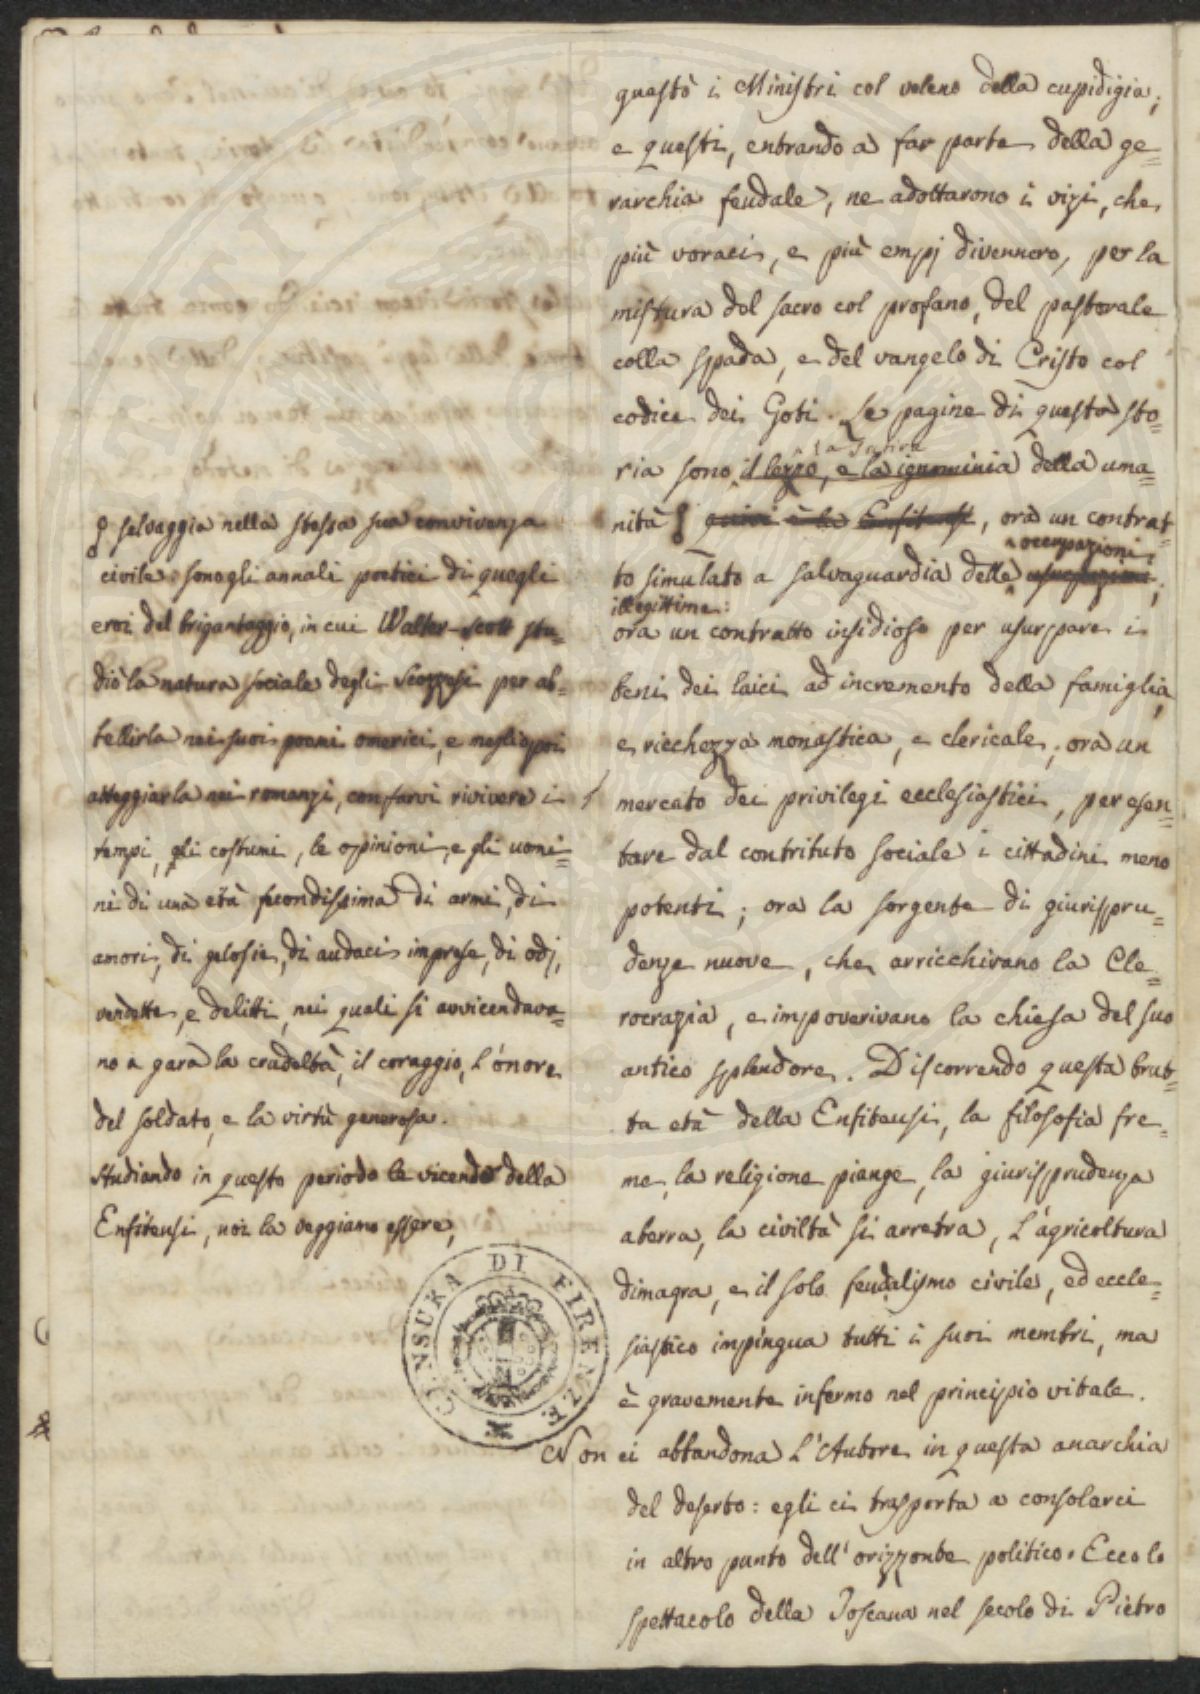 guastò i Ministri col veleno della cupidigia;
e questi, entrando a far parte della ge=
rarchia feudale, ne adottarono i vizi, che
più voraci, e più empj divennero, per la
mistura del sacro col profano, del pastorale
colla spada, e del vangelo di Cristo col
codice dei Goti. Le pagine di questa sto=
la Satira
ria sono il lezzo, e la ignominia della uma=
nità quivi è la Enfiteusi, ora un contrat=
occupazioni
to simulato a salvaguardia delle usurpazioni;
illegittime:
ora un contratto insidioso per usurpare i
beni dei laici ad incremento della famiglia,
e ricchezza monastica, e clericale; ora un
mercato dei privilegi ecclesiastici, per esen=
tare dal contributo sociale i cittadini meno
potenti; ora la sorgente di giurispru=
denze nuove, che arricchivano la Cle=
rocrazia, e impoverivano la chiesa del suo
antico splendore. Discorrendo questa brut=
ta età della Enfiteusi, la filosofia fre=
me, la religione piange, la giurisprudenza
aberra, la civiltà si arretra, l'agricoltura
dimagra, e il solo feudalismo civile, ed eccle=
siastico impingua tutti i suoi membri, ma
è gravemente infermo nel principio vitale.
Non ci abbandona l'Autore in questa anarchia
del deserto: egli ci trasporta a consolarci
in altro punto dell'orizzonte politico. Ecco lo
spettacolo della Toscana nel secolo di Pietro
selvaggia nella stessa sua convivenza
civile: sono gli annali poetici di quegli
eroi del brigantaggio, in cui Walter-Scott stu=
diò la natura sociale degli Scozzesi per ab=
bellirla nei suoi poemi omerici, e meglio poi
atteggiarla nei romanzi, con farvi rivivere i
tempi, gli costumi, le opinioni, e gli uomi=
ni di una età fecondissima di armi, di
amori, di gelosie, di audaci imprese, di odj,
vendette, e delitti, nei quali si avvicendava=
no a gara la crudeltà, il coraggio, l'onore
del soldato, e la virtù generosa.
Studiando in questo periodo le vicende della
Enfiteusi, noi la veggiamo essere,
CENSURA DI FIRENZE